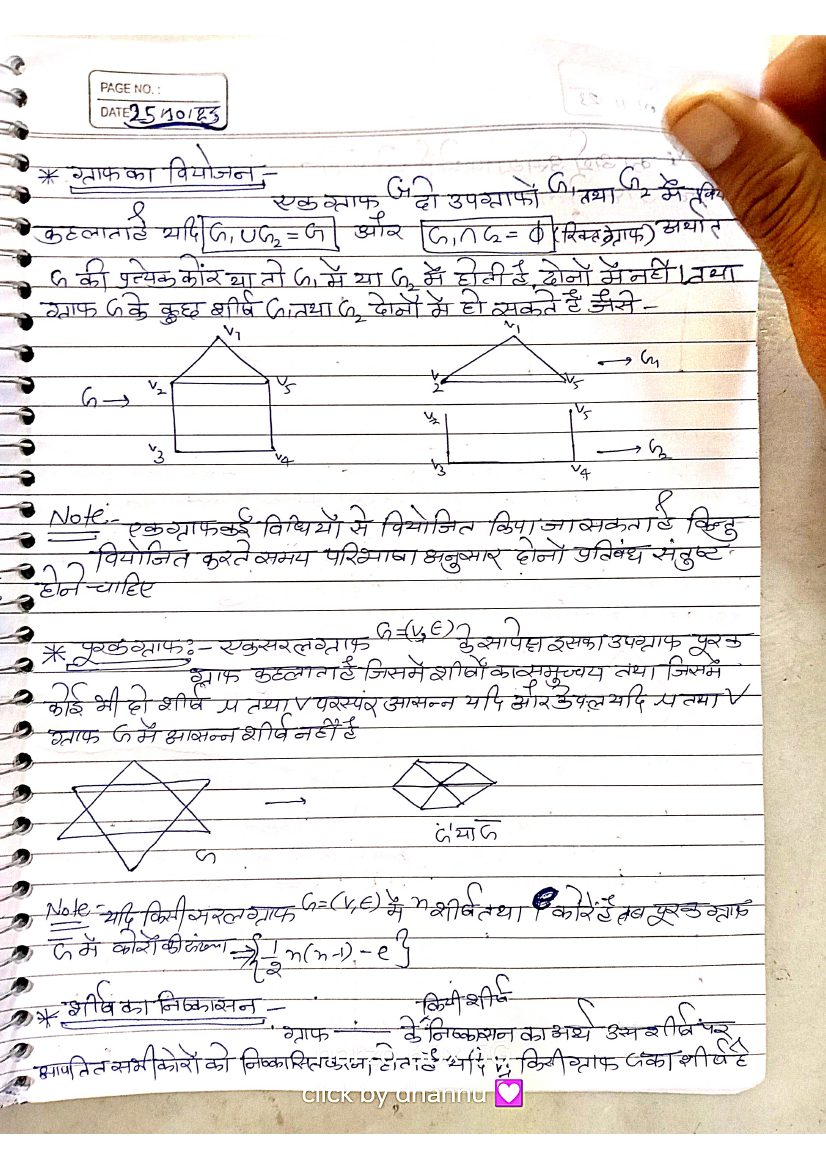 PAGE NO. :
DATE 25/10/23
* ग्राफ का वियोजन -
एक ग्राफ G दो उपग्राफों G₁ तथा G₂ में
कहलाता है यदि G₁ ∪ G₂ = G और G₁ ∩ G₂ = ϕ (रिक्त ग्राफ) अर्थात
G की प्रत्येक कोर या तो G₁ में या G₂ में होती है, दोनों में नहीं। तथा
ग्राफ G के कुछ शीर्ष G₁ तथा G₂ दोनों में हो सकते हैं जैसे -
V₁ V₁
→ G₁
V₂ V₅ V₂ V₅
G →
V₂ V₅
V₃ V₄ V₃ V₄ → G₂
Note:- एक ग्राफ कई विधियों से वियोजित किया जा सकता है किन्तु
वियोजित करते समय परिभाषा अनुसार दोनों प्रतिबंध संतुष्ट
होने चाहिए
* पूरक ग्राफ:- एक सरल ग्राफ G=(V,E) के सापेक्ष इसका उपग्राफ पूरक
ग्राफ कहलाता है जिसमें शीर्षों का समुच्चय तथा जिसमें
कोई भी दो शीर्ष u तथा V परस्पर आसन्न यदि और केवल यदि u तथा V
ग्राफ G में आसन्न शीर्ष नहीं है
→
G G' या G̅
Note:- यदि किसी सरल ग्राफ G=(V,E) में n शीर्ष तथा e कोरें है तब पूरक ग्राफ
G̅ में कोरों की संख्या ⇒ {1/2 n(n-1) - e}
* शीर्ष का निष्कासन - किसी शीर्ष
ग्राफ के निष्कासन का अर्थ उस शीर्ष पर
आपतित सभी कोरों को निष्कासित करना होता है यदि Vi किसी ग्राफ G का शीर्ष है
click by dhannu 💟